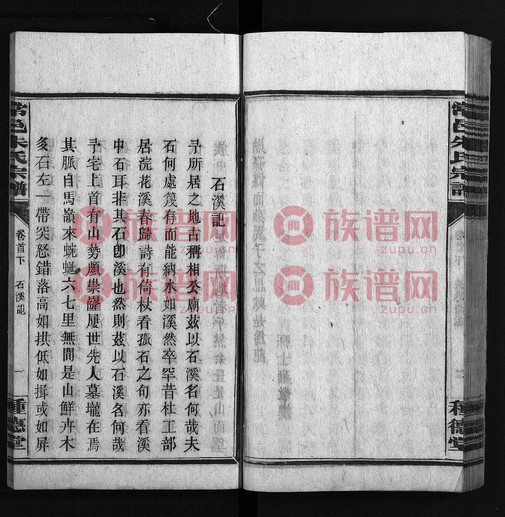 石溪記
予所居之地古稱相公廟茲以石溪名何哉夫
石何處蔑有而能納水如溪然卒罕昔杜工部
居浣花溪春歸詩有倚杖看孤石之句亦看溪
中石耳非其石卽溪也然則茲以石溪名何哉
予宅上首有山勢巍崇巖屢世先人墓壠在焉
其脈自馬嶺來蜿蜒六七里無間是山鮮卉木
多石左一帶突怒錯落高如拱低如揖或如屏
常邑朱氏宗譜
卷首下
石溪記
一
種德堂
常邑朱氏宗譜
種德堂
族谱网
zupu.cn
族谱网
zupu.cn